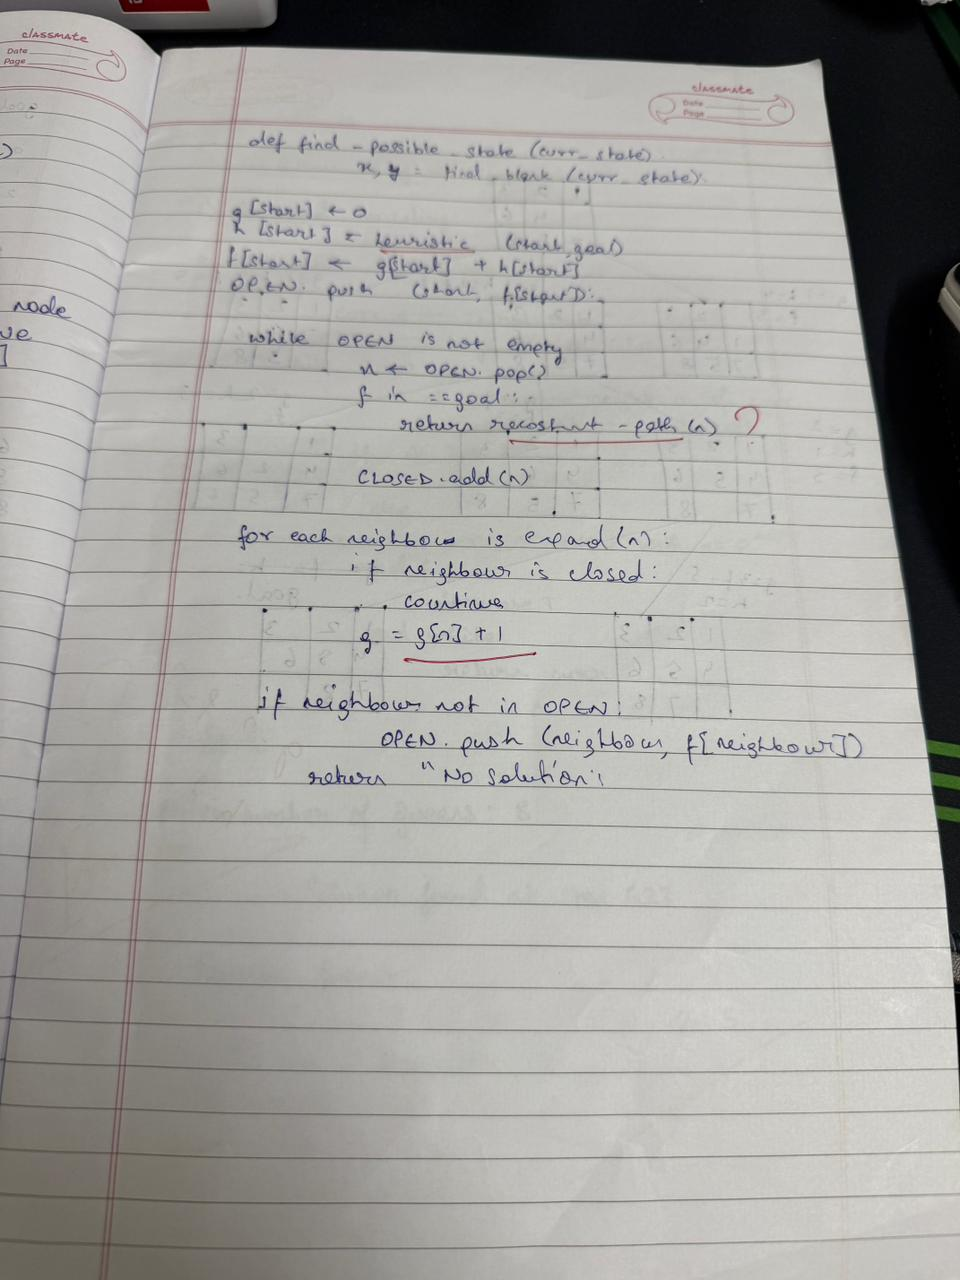 classmate
Date
Page
node
classmate
Date
Page
def find - possible - state (curr - state)
x, y = find - blank (curr - state).
g [start] ← 0
h [start] ← heuristic (start, goal)
f[start] ← g[start] + h[start]
OPEN. push (start, f[start]):
while OPEN is not empty
n ← OPEN. pop()
f in == goal:
return recostruct - path (n) ?
CLOSED.add (n)
for each neighbour is expand (n):
if neighbour is closed:
countinue
g = g[n] + 1
if neighbour not in OPEN:
OPEN. push (neighbour, f[neighbour])
return "No solution: